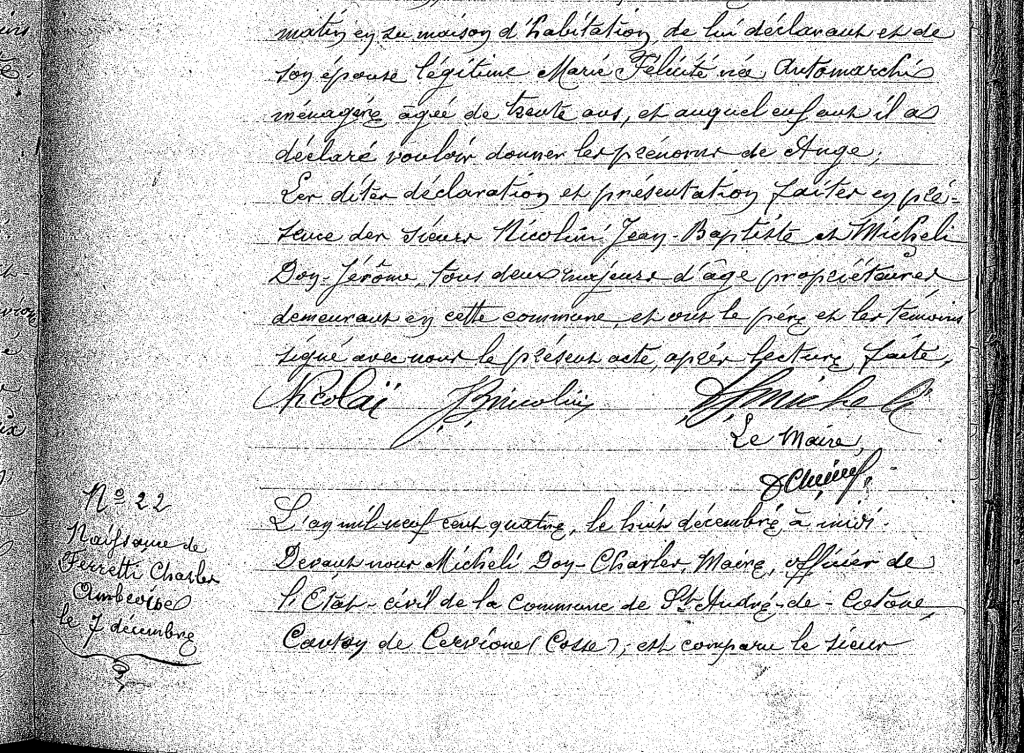 matin en sa maison d'habitation de lui déclarant et de
son épouse légitime Marie Félicité née Antomarchi
ménagère âgée de trente ans, et auquel enfant il a
déclaré vouloir donner les prénoms de Ange;
Les dites déclaration et présentation faites en pré-
sence des sieurs Nicolini Jean-Baptiste et Micheli
Don-Jérôme, tous deux majeurs d'âge propriétaires
demeurant en cette commune, et ont le père et les témoins
signé avec nous le présent acte, après lecture faite,
Nicolaï JBNicolini Micheli
Le Maire,
N° 22
Naissance de
Ferretti Charles
Ambroise
le 7 décembre
L'an mil neuf cent quatre, le huit décembre à midi.
Devant nous Micheli Don-Charles, Maire, officier de
l'Etat-civil de la Commune de St André-de-Cotone,
Canton de Cervione (Corse), est comparu le sieur